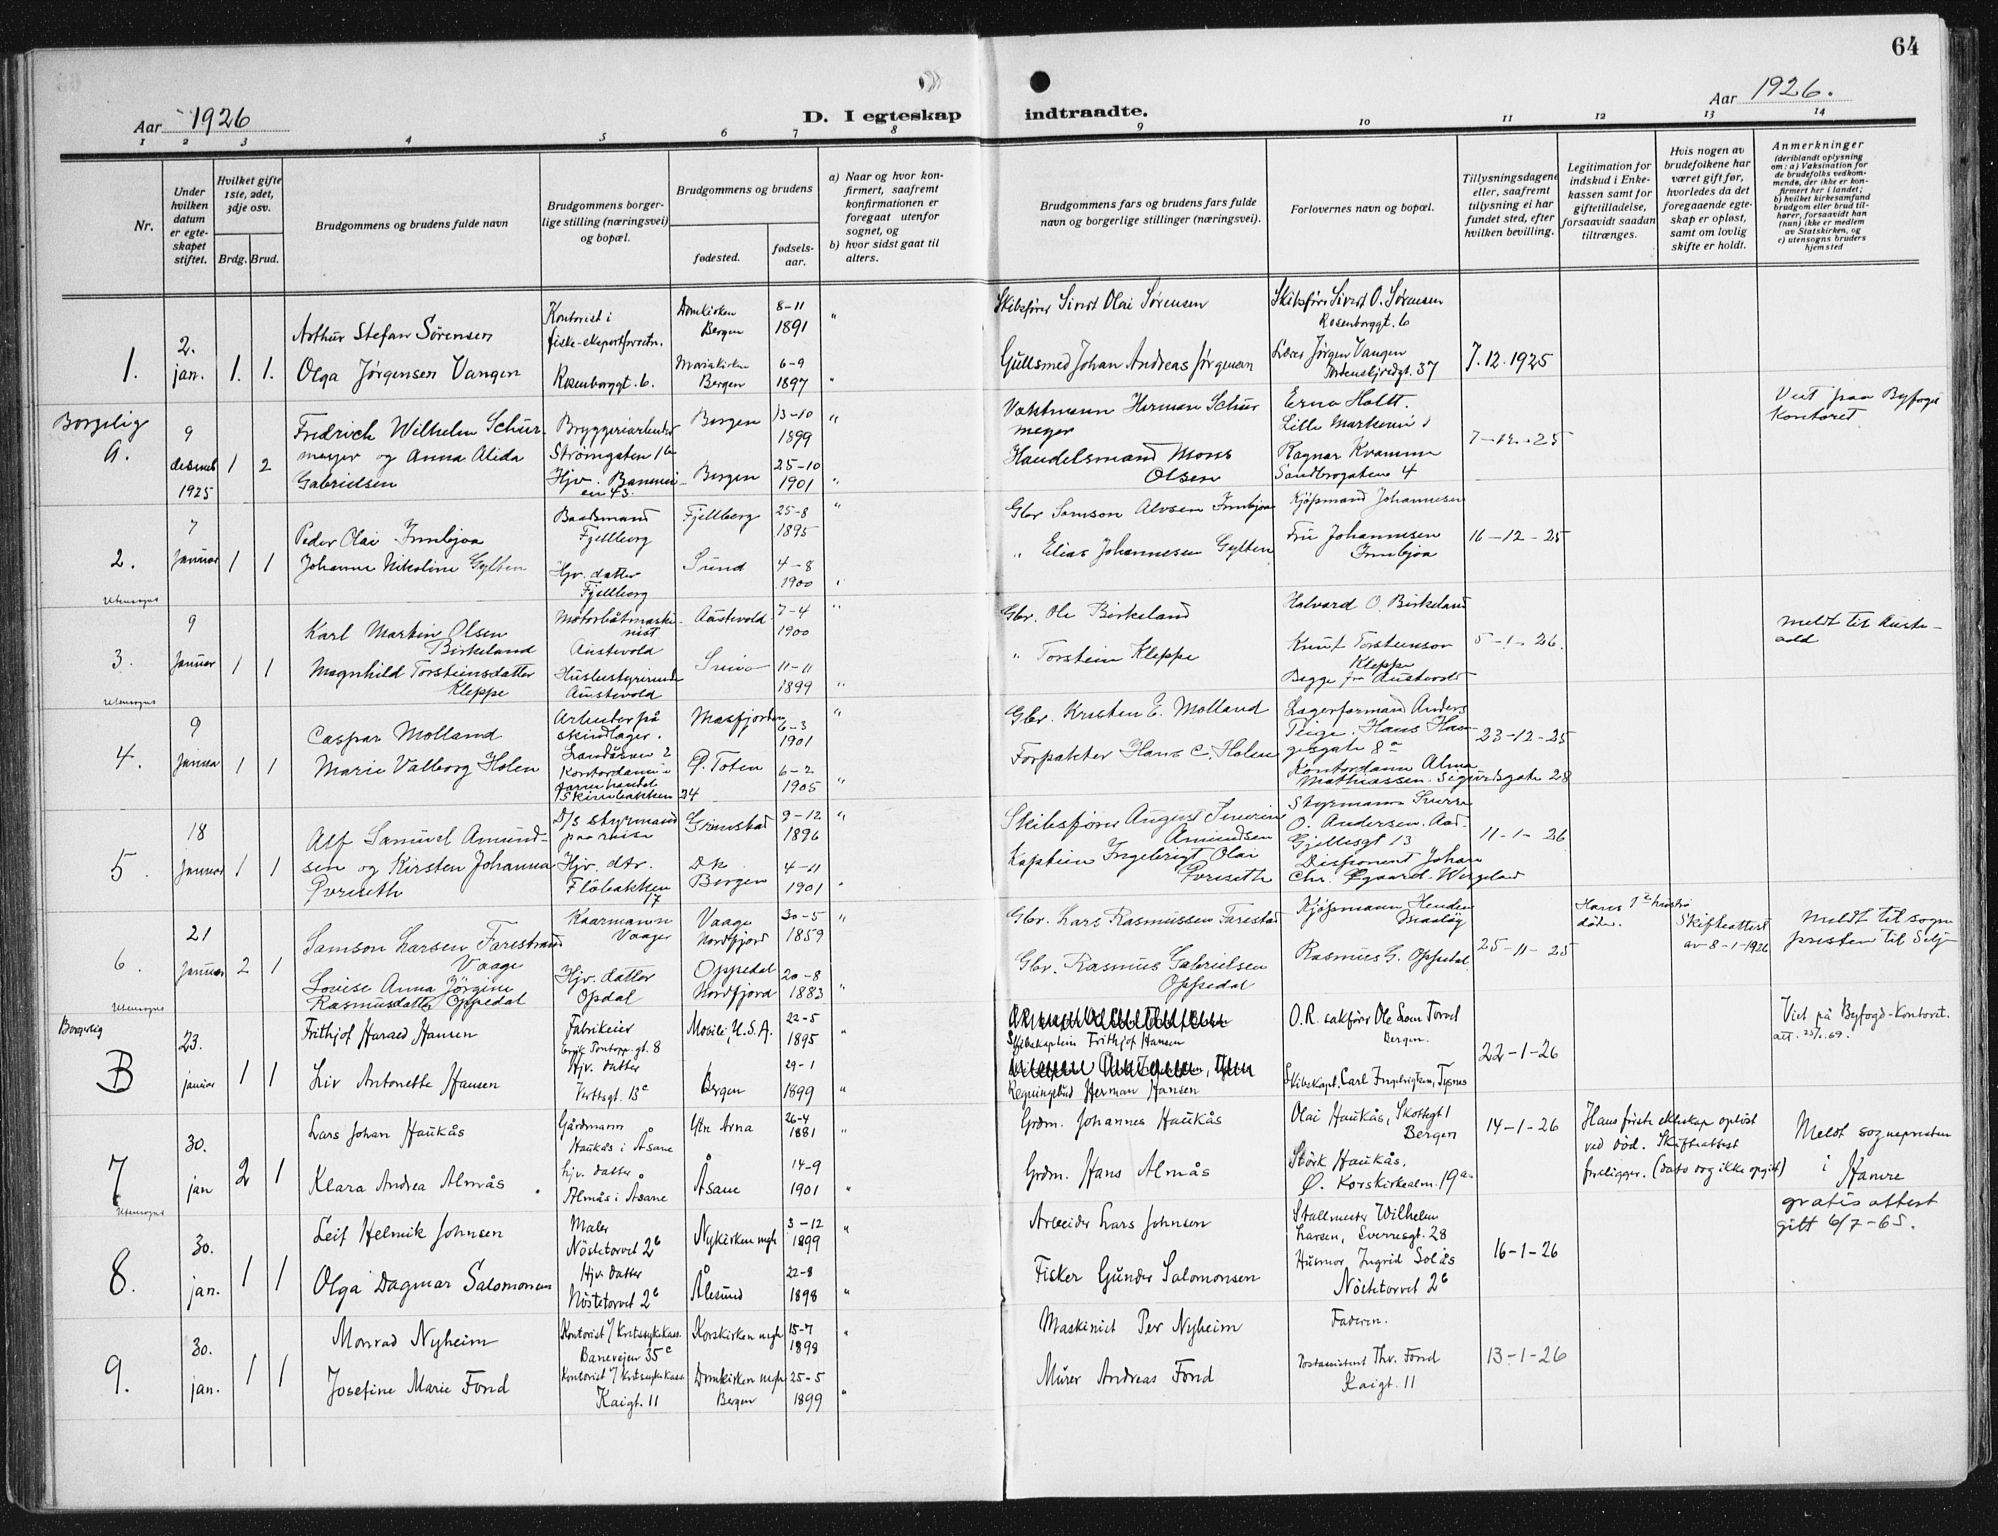 64
Aar 1926
D. I egteskap indtraadte.
Aar 1926.
1 2 3 4 5 6 7 8 9 10 11 12 13 14
Nr.
Under hvilken datum er egteskapet stiftet.
Hvilket gifte 1ste, 2det, 3dje osv.
Brdg. Brud.
Brudgommens og brudens fulde navn
Brudgommens borgerlige stilling (næringsvei) og bopæl.
Brudgommens og brudens
fødested.
fødselsaar.
a) Naar og hvor konfirmert, saafremt konfirmationen er foregaat utenfor sognet, og
b) hvor sidst gaat til alters.
Brudgommens fars og brudens fars fulde navn og borgerlige stillinger (næringsvei).
Forlovernes navn og bopæl.
Tillysningsdagene eller, saafremt tillysning ei har fundet sted, efter hvilken bevilling.
Legitimation for indskud i Enkekassen samt for giftetilladelse, forsaavidt saadan tiltrænges.
Hvis nogen av brudefolkene har været gift før, hvorledes da det foregaaende egteskap er opløst, samt om lovlig skifte er holdt.
Anmerkninger
(deriblandt oplysning om: a) Vaksination for de brudefolks vedkommende, der ikke er konfirmert her i landet; b) hvilket kirkesamfund brudgom eller brud tilhører, forsaavidt han (hun) ikke er medlem av Statskirken, og c) utensogns bruders hjemsted
1. 2. jan. 1. 1.
Arthur Stefan Sørensen
Olga Jørgensen Vangen
Kontorist i
fiske-eksportforretn.
Rosenborggt. 6.
Domkirken
Bergen
8-11
1891 "
Mariakirken
Bergen
6-9
1897 "
Skibsfører Sivert Olai Sørensen
Gullsmed Johan Andreas Jørgensen
Skibsfører Sivert O. Sørensen
Rosenborggt. 6
Jørgen Vangen
37
7.12.1925
Borgelig
a. 9 desemb 1925 1 2
Fredrich Wilhelm Schur-
meyer og Anna Alida
Gabrielsen
Bryggeriarbeider
Strømgaten 16
Hjv. Banevei-
en 43.
Bergen
13-10
1899 "
Bergen
25-10
1901 "
Vaktmann Herman Schur
meyer
Handelsmand Mons
Olsen
Erna Holtt.
Lille Markevei
Ragnar Kvamme
Sandbrogaten 4
7-12-25
Viet fraa Byfogd
kontoret.
2. 7 Januar 1 1
utensogns
Peder Olai Innbjoa
Johanne Nikoline Gylten
Baadsmand
Fjellberg
Hjv. datter
Fjellberg
Fjellberg
25-8
1895 "
Sund
4-8
1900 "
Gbr Samson Alvsen Innbjoa
" Elias Johannesen Gylten
Kjøpmand Johannesen
Fru Johannesen
Innbjoa
16-12-25
3. 9 Januar 1 1
utensogns
Karl Martin Olsen
Birkeland
Magnhild Torsteinsdatter
Kleppe
Motorbåtmaski-
nist
Austevold
Husbestyrerinde
Austevold
Austevold
7-4
1900 "
11-11
1899 "
Gbr. Ole Birkeland
" Torstein Kleppe
Halvard O. Birkeland
Knut Torsteinson
Kleppe
Begge fra Austevold
5-1-26.
Meldt til Auste-
vold
4. 9 Janua 1 1
Caspar Molland
Marie Valborg Holen
Arbeider på
skindlager.
Landåsvei 2
Kontordame i
garnhandel
Skivebakken 24
Masfjorden
6-3
1901 "
Ø. Toten
6-2
1905 "
Gbr. Kristen E. Molland
Forpakter Hans C. Holen
Lagerformand Anders
Teige. Hans Hau-
gesgate 8a
Kontordame Alma
Mathiassen. Sigurdsgate 28
23-12-25
5. 18 Januar 1 1
Alf Samuel Amund-
sen og Kirsten Johanna
D/S styrmand
paa reise
Hjv. dtr.
Fløibakken
17
Grimstad
9-12
1896 "
Dk
Bergen
4-11
1901 "
Skibsfører August Severin
Amundsen
Kaptein Ingebrigt Olai
Styrmann Sverre
O. Andersen. Aad-
Gjellesgt 13
Disponent Johan
Chr. Øgaard-Wergeland
11-1-26
6. 21 Januar 2 1
utensogns
Samson Larsen Farestrand
Vaage
Lovise Anna Jørgine
Rasmusdatter Oppedal
Kaarmann
Vaager
Hjv. datter
Opdal
Vaage
Nordfjord
30-5
1859 "
Oppedal
Nordfjord
20-8
1883 "
Gbr. Lars Rasmussen Farestad
Gbr. Rasmus Gabrielsen
Oppedal
Kjøpmann Henden
Maaløy
Rasmus G. Oppedal
25-11-25
Hans 1ste hustru
død.
Skifteattest
av 8-1-1926
Meldt til sogne
presten til Selje
Borgerlig
B 23. januar 1 1
Frithjof Harald Hansen
Liv Antonette Hansen
Fabrikeier
Erik Pontopp. gt. 8
Hjv. datter
Vertftsgt. 13c
Mobile, U.S.A.
22-5
1895 "
Bergen
29-1
1899 "
Skibskaptein Frithjof Hansen
Regningsbud Herman Hansen
O.R. sakfører Ole Lom Torvet
Bergen.
Skibskapt. Carl Ingebrigtsen, Tysnes
22-1-26
Viet på Byfogd-Kontoret.
att. 23/1.69.
7 30. jan 2 1
utensogns
Lars Johan Haukås
Klara Andrea Almås
Gårdmann
Haukås i Åsane
hjv. datter
Almås i Åsane
Ytre Arna
26-4
1881 "
Åsane
14-9
1901 "
Grdm. Johannes Haukås
Grdm. Hans Almås
Olai Haukås, Skottegt 1
Bergen
Størk Haukås,
Ø. Korskirkealm. 19a
14-1-26
Hans første ekteskap opløst
ved død. Skifteattest
foreligger. (dato dog ikke opgit)
Meldt sognepresten
i Hamre
gratis attest
gitt 6/7-65.
8. 30. jan. 1 1
Leif Helmik Johnsen
Olga Dagmar Salomonsen
Maler
Nöstetorvet 2b
Hjv. datter
Nöstetorvet 2b
Nykirken mgh
3-12
1899 "
Ålesund
22-8
1898 "
Arbeider Lars Johnsen
Fisker Gunder Salomonsen
Stallmester Wilhelm
Larsen, Sverresgt. 28
Husmor Ingrid Solås
Nöstetorvet 2b
16-1-26
9. 30. jan. 1 1
Monrad Nyheim
Josefine Marie Fond
Kontorist v/ Kretssykekass.
Baneveien 35c
Kontorist v/ Kretssykekass
Kaigt. 11
Korskirken mgh
15-7
1898 "
Domkirken mgh
Bergen
25-5
1899 "
Maskinist Per Nyheim
Murer Andreas Fond
Faderen.
Postassistent Thv. Fond
Kaigt. 11
13-1-26